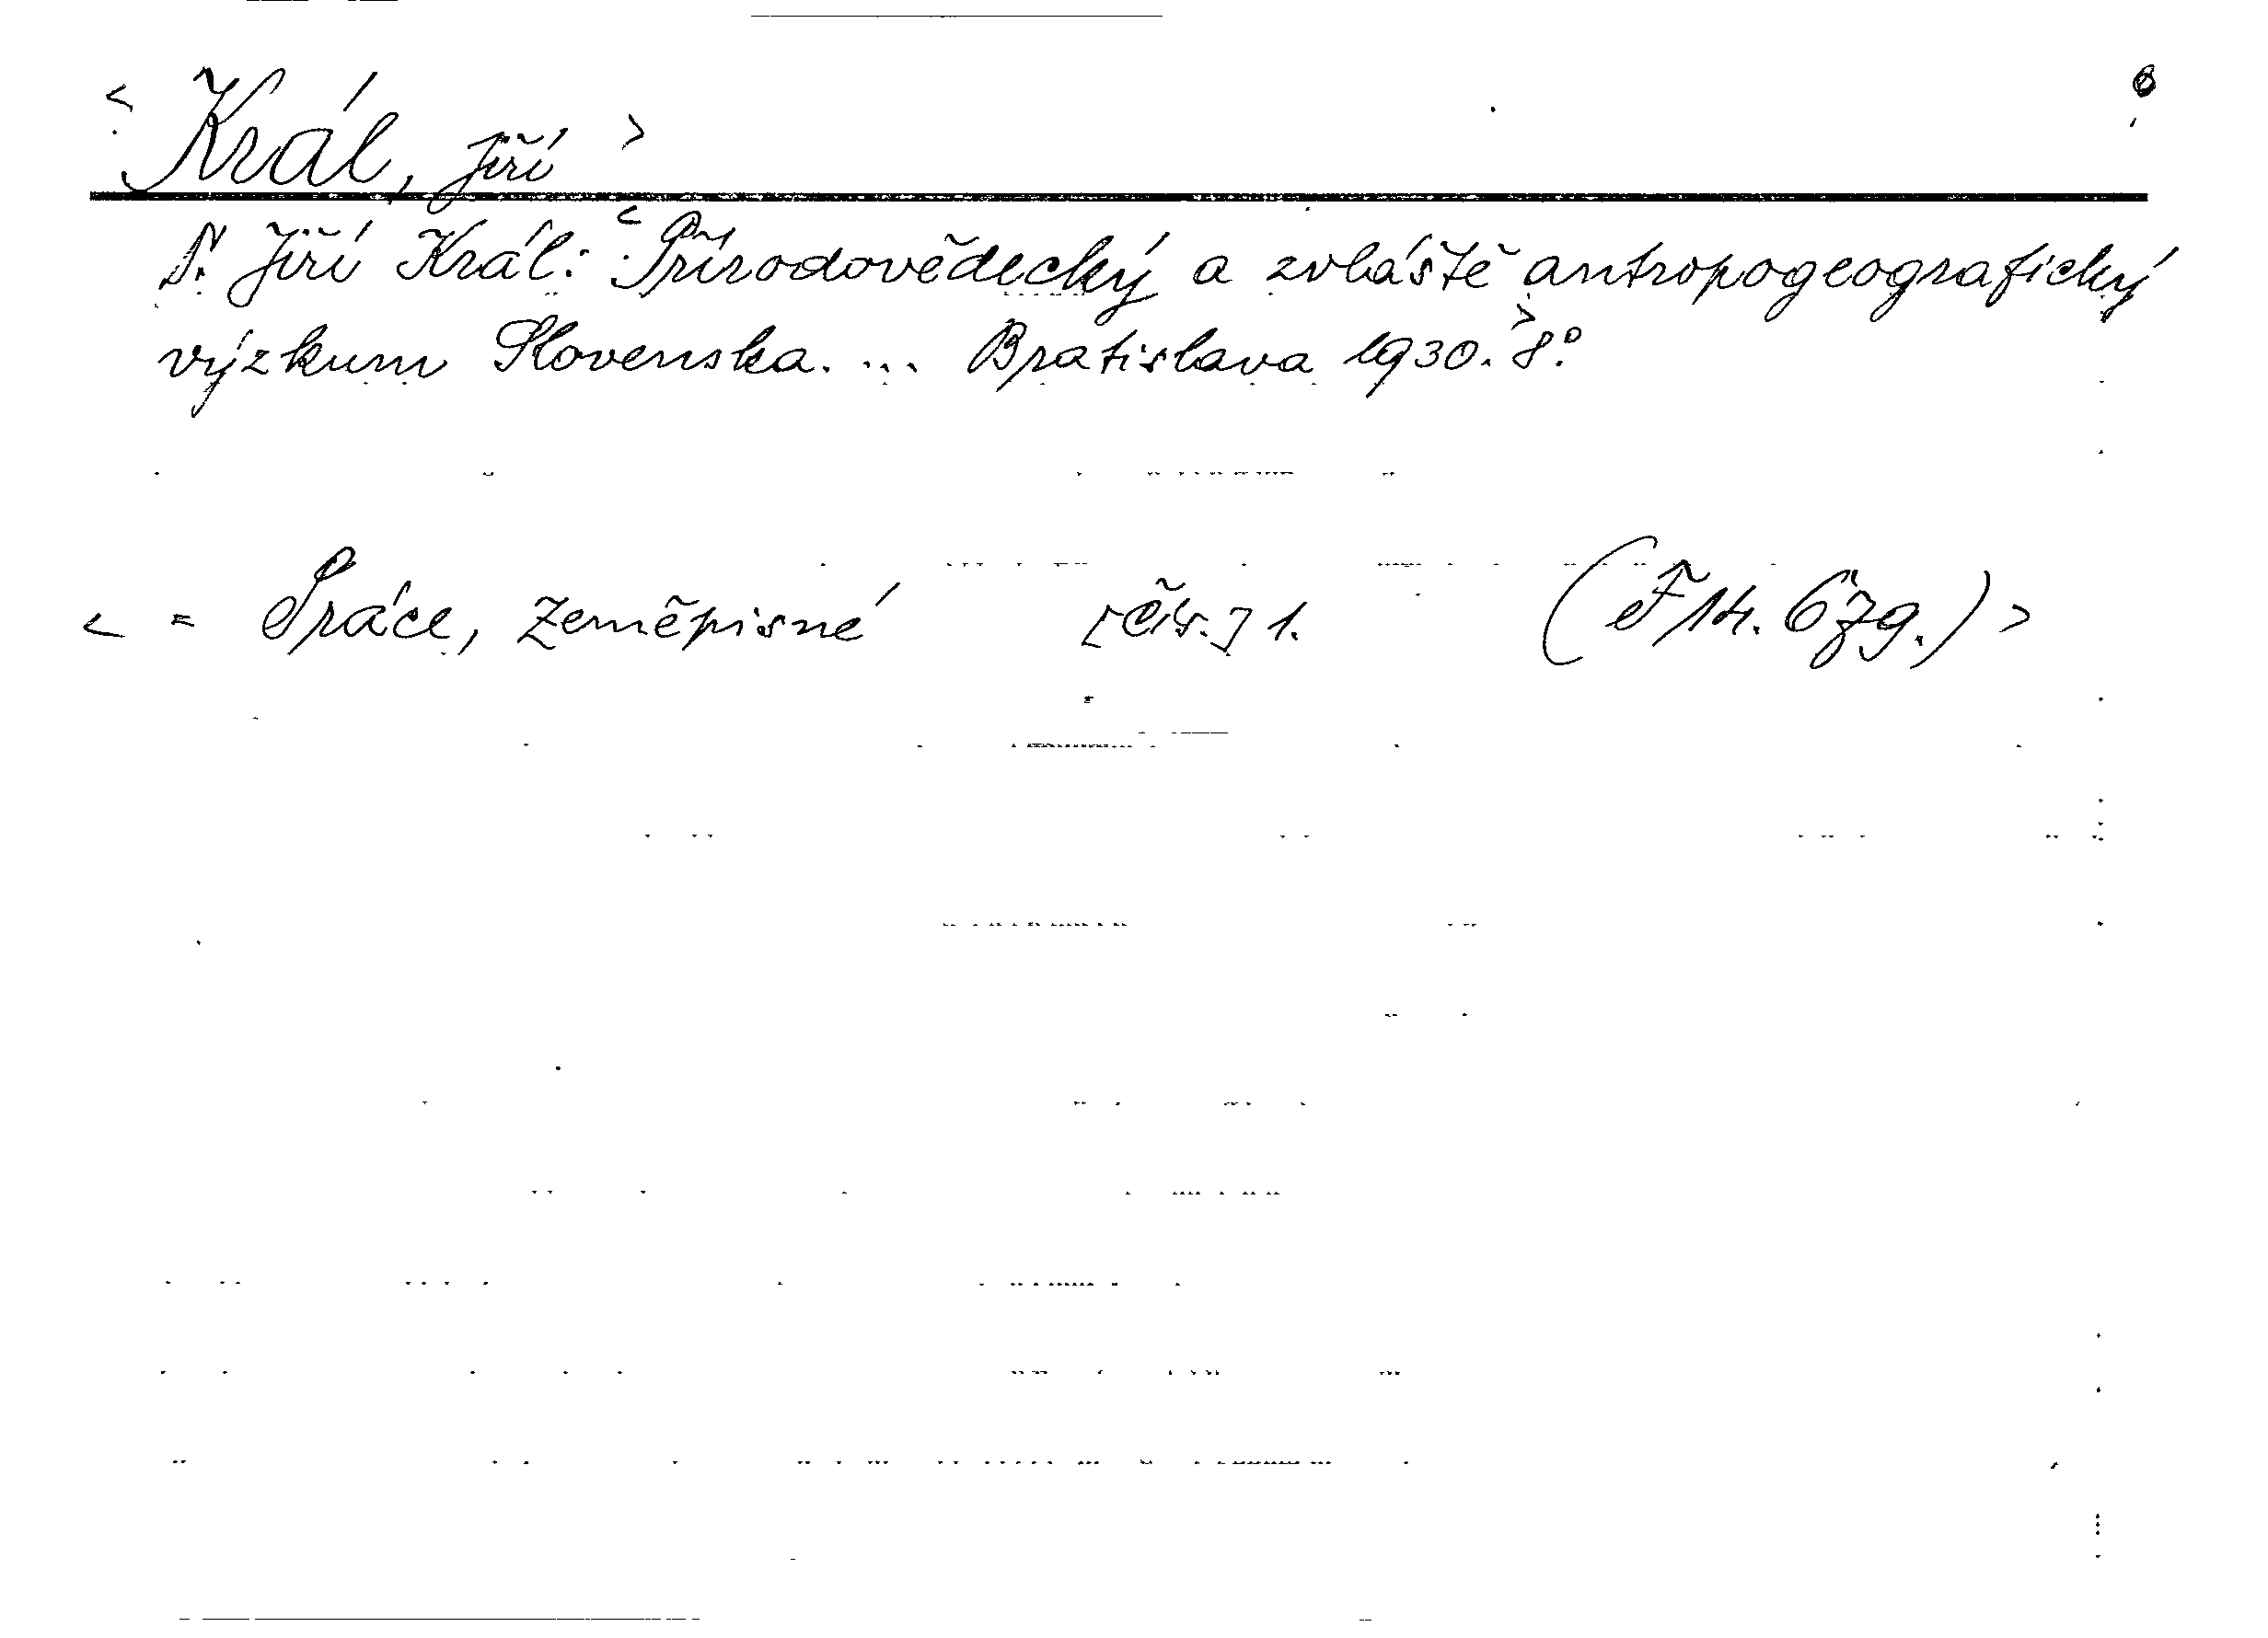 < Král, Jiří >
Dr. Jiří Král: < Přírodovědecký a zvláště antropogeografický
výzkum Slovenska. ... Bratislava 1930. > 8°.
< = Práce, zeměpisné [Čís.] 1. (F14. 679.) >